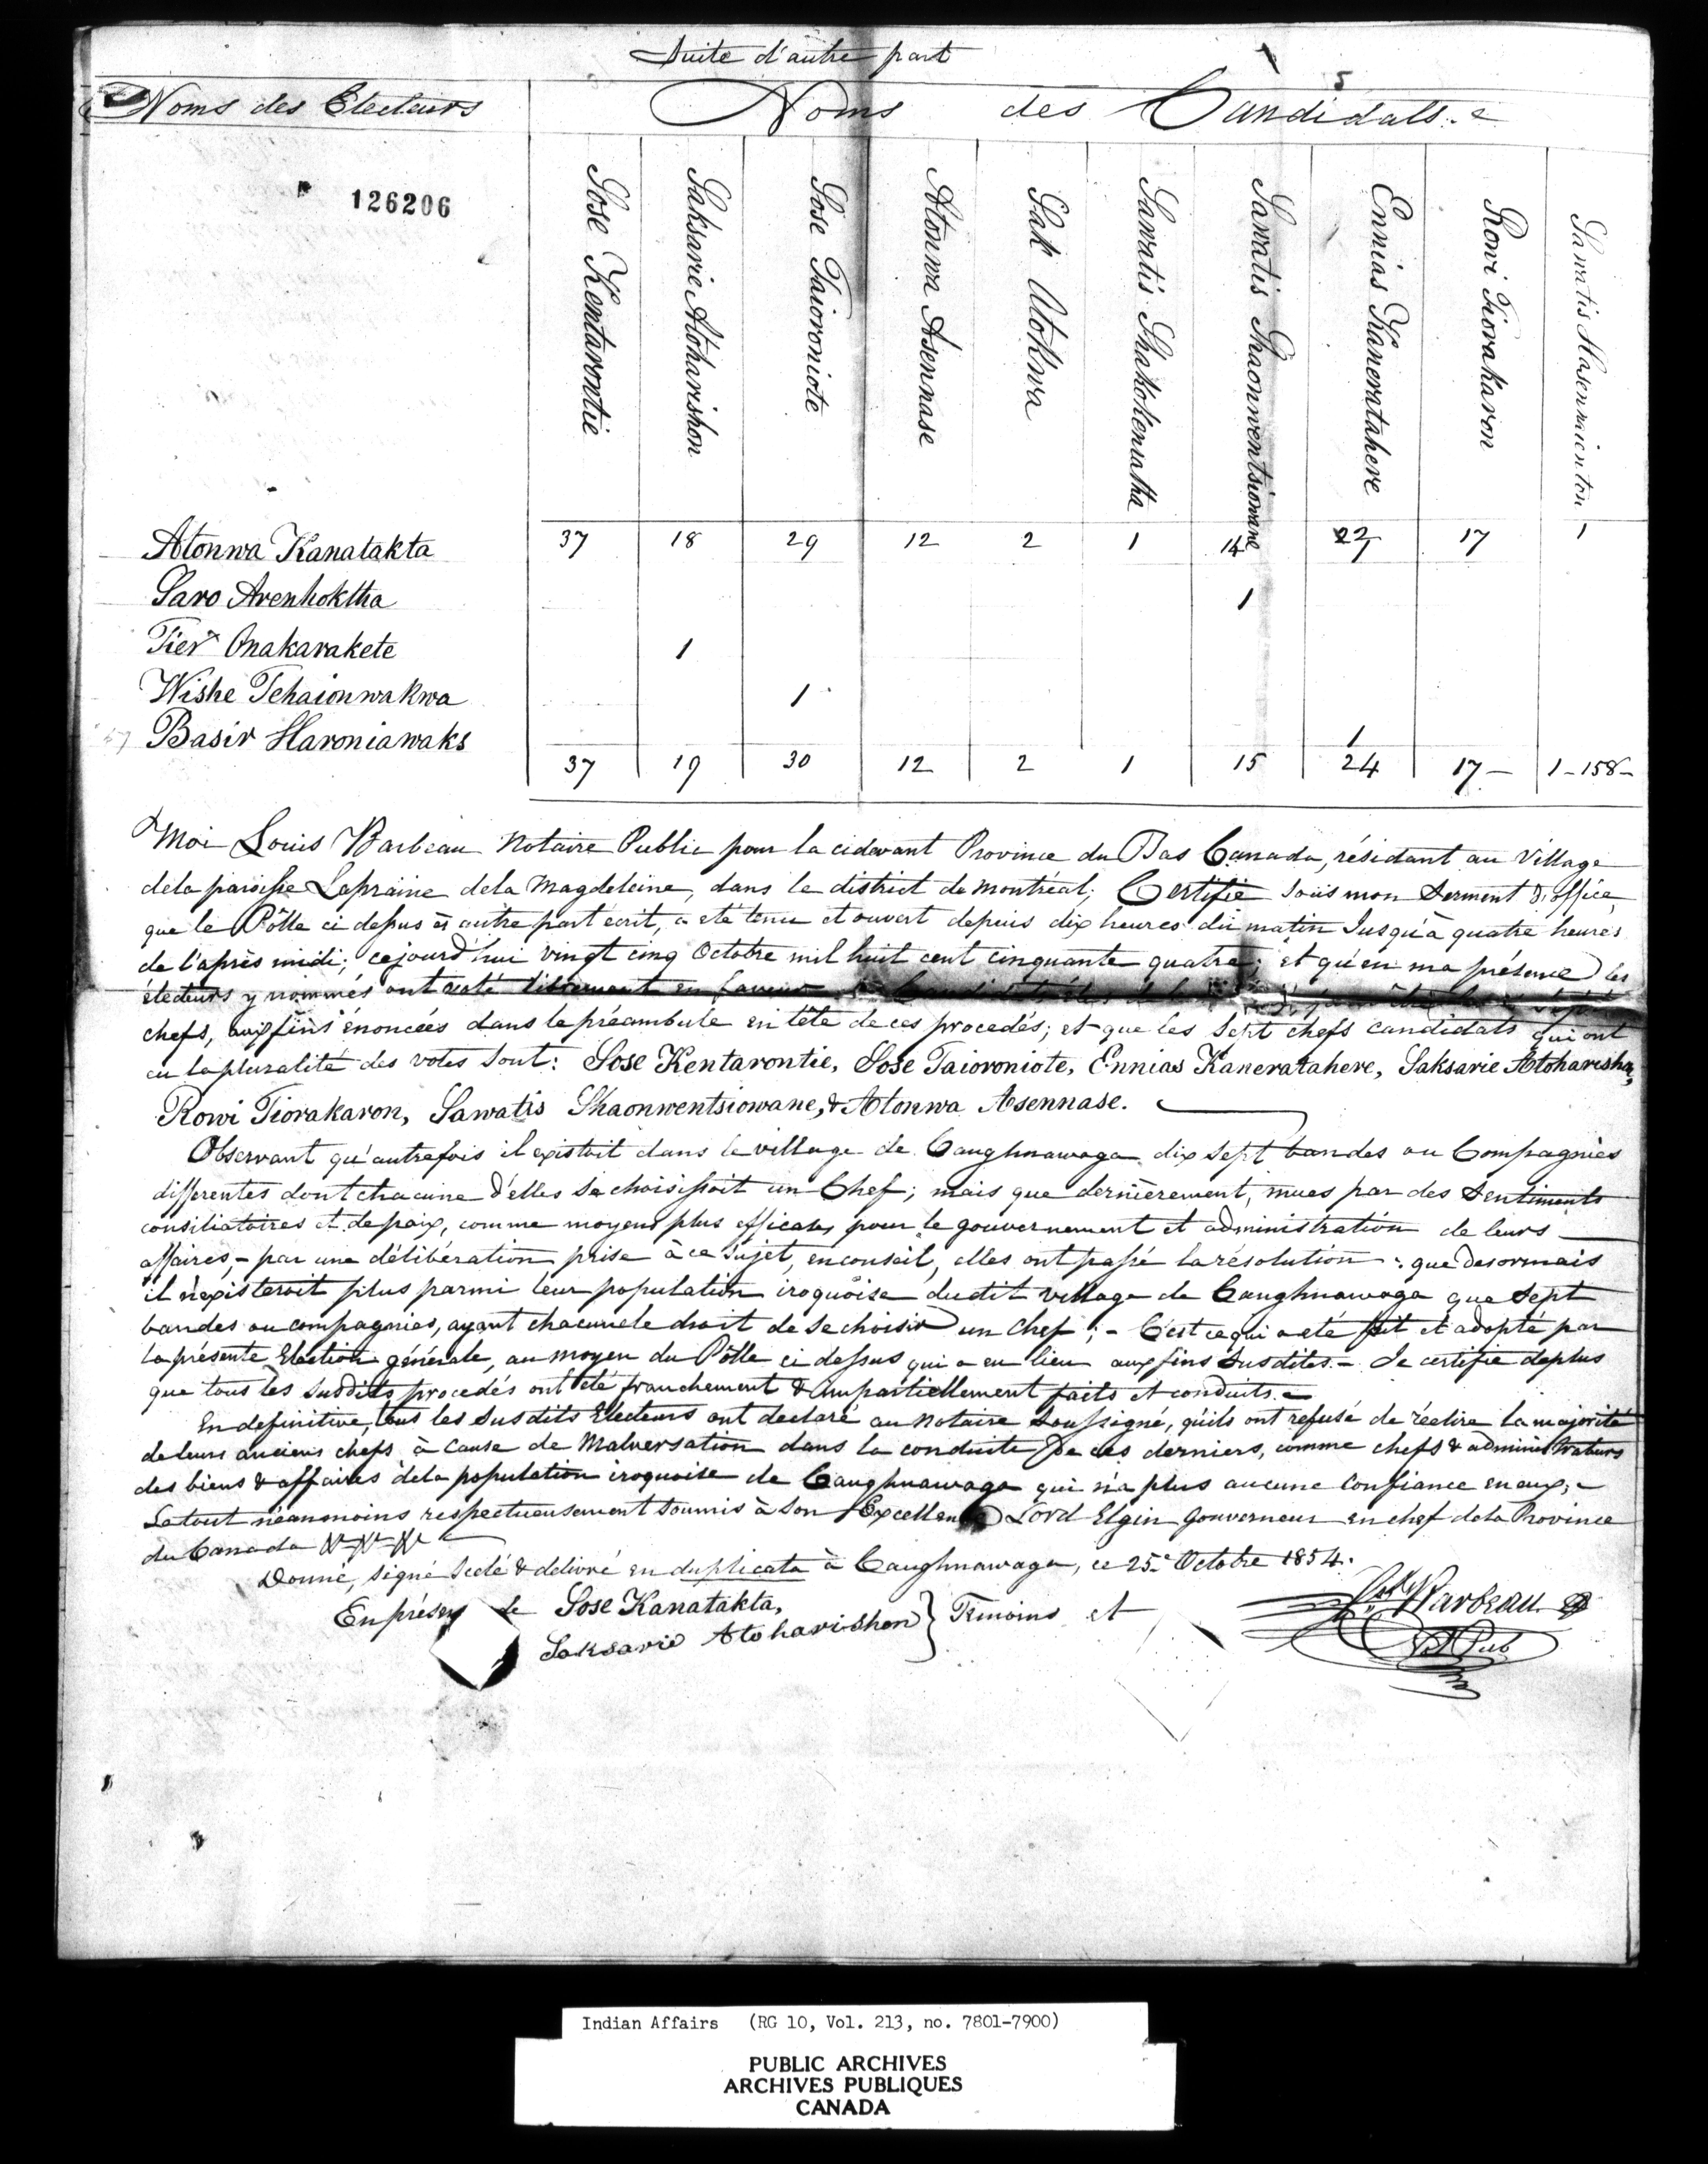 Suite d'autre part
5
Noms des Electeurs
Noms des Candidats.
126206
Sose Kentarontie
Saksarie Atoharishon
Sose Taioroniote
Atonwa Asennase
Sak Atokwa
Sawatis Shakolenratha
Sawatis Skaonwentsiowane
Ennias Kaneratahere
Rowi Tiorakaron
Sawatis Hasennienton
Atonwa Kanatakta 37 18 29 12 2 1 14 23 17 1
Saro Arenhoktha 1
Tier Onakarakete 1
Wishe Tehaionwakwa 1
Basir Haroniawaks 1
37 19 30 12 2 1 15 24 17 - 1 - 158 -
Moi Louis Barbeau Notaire Public pour la cidevant Province du Bas Canada, résidant au Village
dela paroisse Lapraine dela Magdeleine, dans le district de Montréal; Certifie sous mon Serment d'office,
que le Pôlle ci dessus & autre part écrit, a eté tenu et ouvert depuis dix heures du matin Jusqu'à quatre heures
de l'après midi; cejourd'hui vingt cinq Octobre mil huit cent cinquante quatre; et qu'en ma présence les
électeurs y nommés ont voté librement en faveur
chefs, aux fins énoncées dans le préambule en tête de ces procedés; et que les Sept chefs candidats qui ont
eu la pluralité des votes sont: Sose Kentarontie, Sose Taioroniote, Ennias Kaneratahere, Saksarie Atoharishon,
Rowi Tiorakaron, Sawatis Skaonwentsiowane, & Atonwa Asennase.
Observant qu'autrefois il existoit dans le village de Caughnawaga dix sept bandes ou Compagnies
differentes dont chacune d'elles se choisissoit un Chef; mais que dernièrement, mues par des Sentiments
consiliatoires et de paix, comme moyens plus efficaces pour le gouvernement et administration de leurs
affaires, - par une délibération prise à ce sujet, en consail, elles ont passé la résolution: que desormais
il n'existeroit plus parmi leur population iroquoise dudit village de Caughnawaga que Sept
bandes ou compagnies, ayant chacune le droit de se choisir un chef; - C'est ce qui a eté fait et adopté par
la présente Election générale, au moyen du Pôlle ci dessus qui a eu lieu aux fins Susdites. - Je certifie deplus
que tous les susdits procedés ont été franchement & impartiellement faits et conduits. -
En definitive, tous les susdits Electeurs ont declaré au Notaire Soussigné, qu'ils ont refusé de réelire la majorité
de leurs anciens chefs à cause de Malversation dans la conduite de ces derniers, comme chefs & administrateurs
des biens & affaires dela population iroquoise de Caughnawaga qui n'a plus aucune Confiance en eux; -
Le tout néanmoins respectueusement soumis à Son Excellence Lord Elgin Gouverneur en chef dela Province
du Canada
Donné, signé Scelé & delivré en duplicata à Caughnawaga, ce 25e Octobre 1854.
En présen de Sose Kanatakta,
Saksarie Atoharishon } Témoins et
Ls Barbeau
Not Pub
Indian Affairs (RG 10, Vol. 213, no. 7801-7900)
PUBLIC ARCHIVES
ARCHIVES PUBLIQUES
CANADA